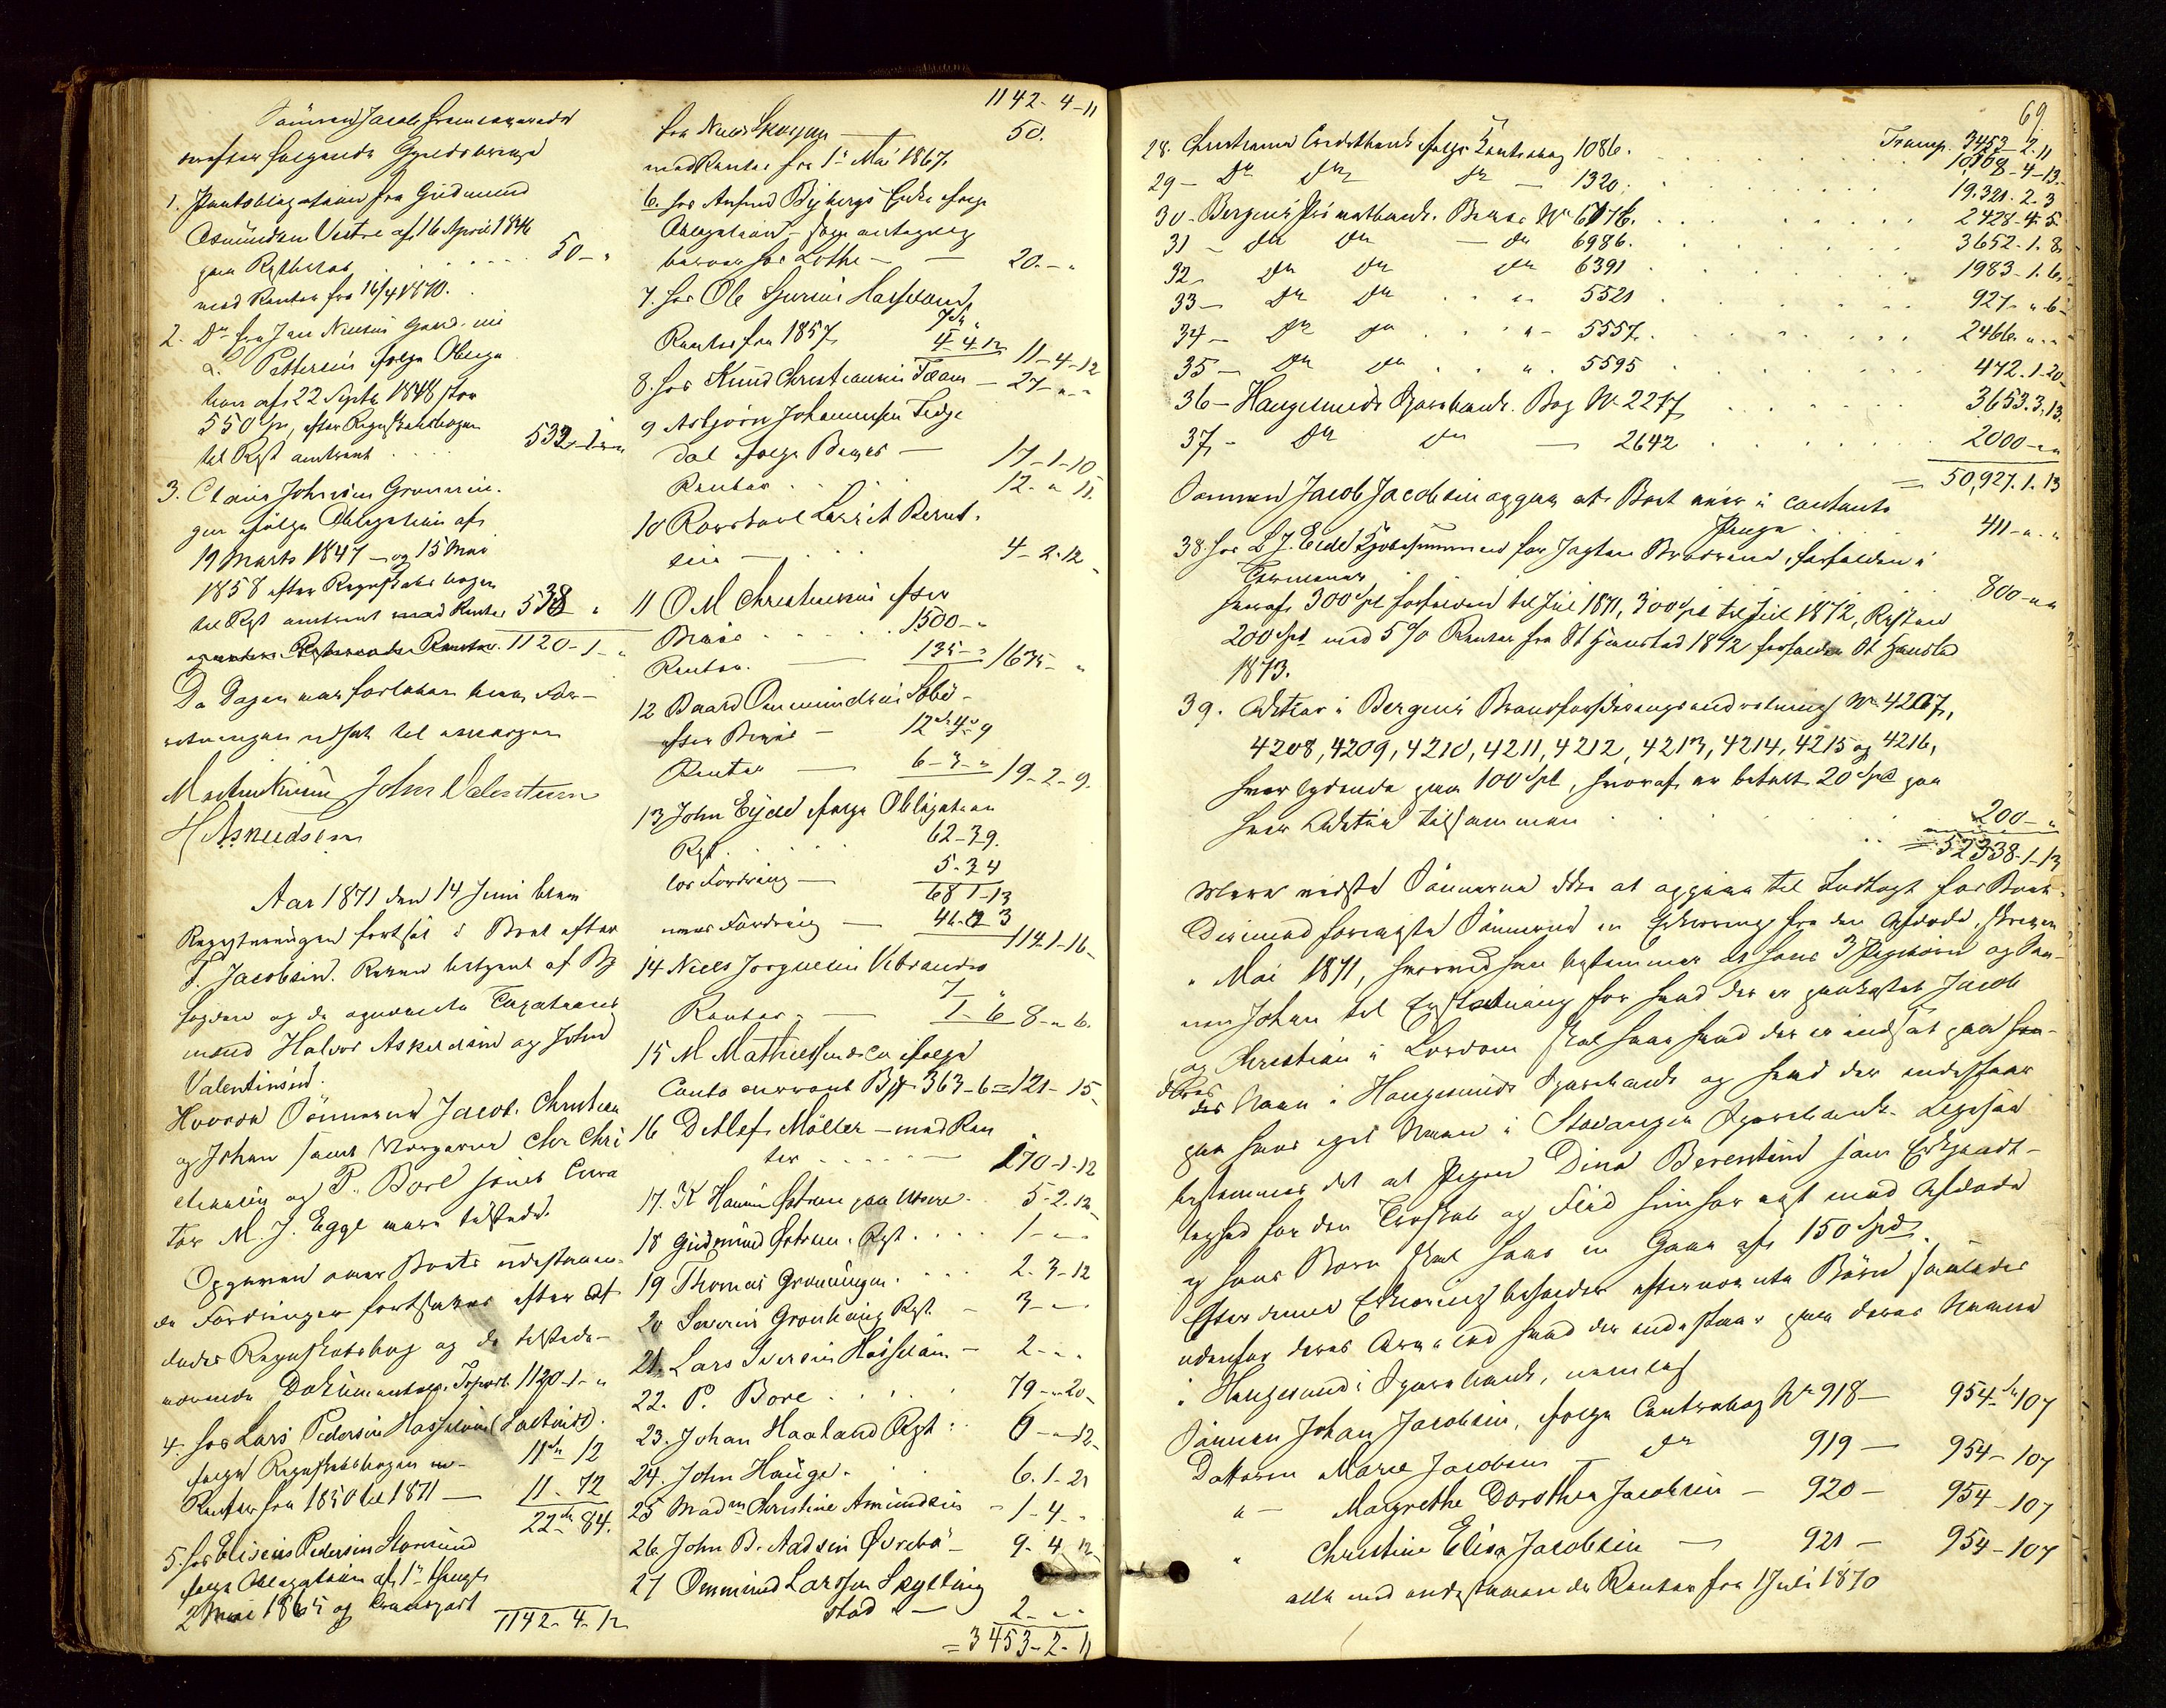 Sönnen Jacob fremlagde
derefter følgende Gjeldsbreve
1. Pantobligation fra Gudmund
Asmundsen Vestre af 16 April 1846
50 - "
med Renter fra 16/4 1870.
2. Do fra Jan Nielsen
L. Pettersen ifølge Obliga
tion af 22 Septr 1848 stor
550 Spd, efter Regnskabsbogen
til Rest anført . . . 532-1-"
3. Claus Johnsen Gronnin-
gen ifølge Obligation af
19 Marts 1847 - og 15 Mai
1858 efter Regnskabsbogen
til Rest anført med Renter 538 "
1120-1-"
Da Dagen var forløben blev For-
retningen udsat til imorgen
John Valentinsen
H Asneudsen
Aar 1871 den 14 Juni blev
Registreringen fortsat i Boet efter
T. Jacobsen. Retten betjent af By
fogden og de opnævnte Taxations
mænd Halvor Askeldsen og John
Valentinsen.
Hvorda Sönnerne Jacob, Christian
og Johan samt Svogerne Chr Chri
stensen og P. Bore som Cura
tor M. J. Egge vare tilstede.
Opgaven over Boets udestaaen-
de Fordringer fortsattes efter Af
dødes Regnskabsbog og de tilstede-
værende Dokumenter. Transp. 1120-1-"
4. hos Lars Pedersen Hasseløen
ifølge Regnskabsbogen 11 12
Renter fra 1850 til 1871 — 11 - 72
22 84.
5. hos Elisæus Pedersen Storesund
ifølge Obligation af
2 Mai 1865 og transport
1142-4-12
1142-4-11
fra Niels 50.
med Renter fra 1 Mai 1867.
6. hos Anfind Bybergs Enke ifølge
Obligation
hos Lothe — 20.-"
7. hos Ole Hasseløen
7 "
Renter fra 1857 4-4-12 11-4-12
8. hos Knud Christiansen Faan - 27-"-"
9 Asbjørn Johannesen Fedje
dal ifølge Bevis — 17-1-10
Renter . . . . 12-"-11.
10 Bernt-
sen — 4-2-12
11 O M Christensen efter
Bevis . . . . . 1500-"
Renter. — 135-" 1635-"
12 Baard Ommundsen Sæbø-
efter Bevis — 12-4-9
Renter — 6-3-" 19-2-9.
13 John Eide ifølge Obligation
Rest . . . . . 62-3-9.
løs Fordring — 5-3-4
68-1-13
mere Fordring — 46-"-3 114-1-16-
14 Niels Jørgensen Vibrandsø
7 "
Renter — 1-"-6 8-"-6.
15 M. Mathiesen & Co ifølge
Conto currant 363-6 = 121- 15-
16 Detlef Møller - med Ren
ter . . . . . — 170-1-12
17. K Hansen 5-2-12
18 Gudmund Rest . . . . 1-"-"
19 Thomas Gronningen . . . . 2-3-12
20 Severin Gronhaug Rest - 3-"-"
21. Lars Iversen Hasseløen - 2-"-"
22. P. Bore . . . . . 79-"-20-
23. Johan Haaland Rest . . 6-"-12-
24. John Hauge . . . 6-1-21
25 Madm Christine Amundsen - 1-4-"
26. John B. Aadsen Øvrebø - 9-4-12-
27 Ommund Larssen Skytting
stad — 2-"-"
= 3453-2-11
69
Transp. 3453-2-11
28. Christiania Creditbank ifølge Contrabog 1086. . . . 10,168-4-13-
29 - Do Do Do — 1320 . . . . 19,321-2-3
30 - Bergens Privatbank. Bevis No 6176. . . . 2428-4-5
31 - Do Do — Do 6986. . . . 3652-1-8
32 - Do Do Do 6391 . . . . 1983-1-6
33 - Do Do . . " 5521 . . . . 927-"-6-
34 - Do Do . . "- 5557. . . . 2466-"-"
35 - Do Do . . ". 5595 . . . . 472-1-20-
36 - Haugesunds Sparebank. Bog No 2217 . . . . 3653-3-13.
37 - Do Do — 2642 . . . . 2000-"-"
= 50,927-1-13
Sønnen Jacob Jacobsen opgav at Boet eier i contante
Penge . 411-"-"
38. hos L J. Eide Kjøbesummen for Jagten Brødrene, forfalden i
Terminer 800-"-"
hvoraf 300 Spd forfalden til Juli 1871, 300 Spd til Juli 1872, Resten
200 Spd med 5 % Renter fra St Hanstid 1872 forfalden St Hanstid
1873.
39. Actier i Bergens Brandforsikringsindretning No 4207,
4208, 4209, 4210, 4211, 4212, 4213, 4214, 4215 og 4216,
hver lydende paa 100 Spd, hvoraf er betalt 20 Spd paa
hver Actie tilsammen . . . 200-"
= 52338-1-13
Mere vidste Sönnerne ikke at opgive til Indtægt for Boet.
Dernæst foreviste Sönnerne en Erklæring fra den Afdøde, skreven
" Mai 1871, hvorved han bestemmer at hans 3 Pigebørn og Søn-
nen Johan til Erstatning for hvad der er paakostet Jacob
og Christian i Lærdom skal have hvad der er indsat paa
deres Navn i Haugesunds Sparebank og hvad der indestaar
paa hans eget Navn i Stavanger Sparebank. Ligesaa
bestemmes det at Pigen Dina Berentsen som Erkjendt-
lighed for den Troskab og Flid hun har vist mod Afdøde
og hans Børn skal have en Gave af 150 Spd.
Efter denne Erklæring beholder efternævnte Børn saaledes
udenfor deres Arvelod hvad der indestaar paa deres Navne
i Haugesunds Sparebank, nemlig
Sönnen Johan Jacobsen, ifølge Contrabog No 918 — 954-107
Datteren Marie Jacobsen — Do 919 — 954-107
" — Margrethe Dorothea Jacobsen — 920 — 954-107
" Christine Elisa Jacobsen — 921 — 954-107
alle med indestaaende Renter fra 1 Juli 1870